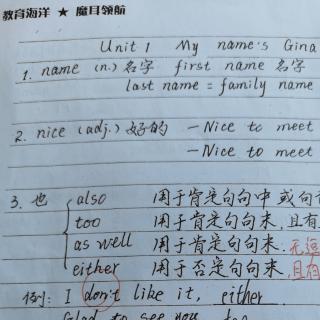 教育海洋 ★ 魔耳领航
Unit 1 My name's Gina
1. name (n.) 名字 first name 名字
last name = family name
2. nice (adj.) 好的 - Nice to meet
- Nice to meet
3. 也
also 用于肯定句句中 或句首
too 用于肯定句句末, 且有
as well 用于肯定句句末. 无逗
either 用于否定句句末, 且有
例: I don't like it, either.
Glad to see you, too